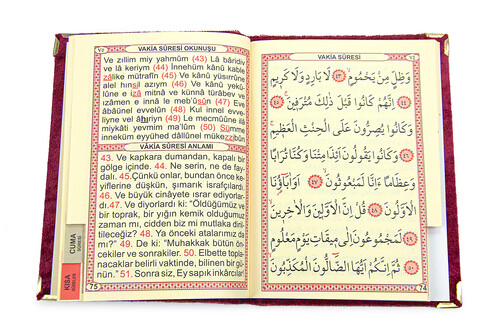 V٤
VAKİA SÛRESİ OKUNUŞU
Ve zıllim miy yahmûm (43) Lâ bâridiv
ve lâ keriym (44) İnnehüm kânû kable
zâlike mütrafîn (45) Ve kânû yüsırrûne
alel hınsil azıym (46) Ve kânû yekû-
lûne e izâ mitnâ ve künnâ türâbev ve
ızâmen e innâ le meb'ûsûn (47) Eve
âbâünel evvelûn (48) Kul innel evve-
lîyne vel âhıriyn (49) Le mecmûûne ilâ
miykâti yevmim ma'lûm (50) Sümme
inneküm eyyühed dâllûnel mükezzibûn
VÂKİA SÛRESİ ANLAMI
43. Ve kapkara dumandan, kapalı bir
gölge içinde. 44. Ne serin, ne de fay-
dalı. 45.Çünkü onlar, bundan önce ke-
yiflerine düşkün, şımarık israfçılardı.
46. Ve büyük cinâyete ısrar ediyorlar-
dı.47. Ve diyorlardı ki: "Öldüğümüz ve
bir toprak, bir yığın kemik olduğumuz
zaman mı, cidden biz mi mutlaka diri-
tileceğiz? 48. Ya önceki atalarımız da
mı?" 49. De ki: "Muhakkak bütün ön-
cekiler ve sonrakiler. 50. Elbette topla-
nacaklar belirli vaktinde, bilinen bir gü-
nün." 51. Sonra siz, Ey sapık inkârcılar!
75
CUMA
SÛRESİ
KISA
SÛRELER
VAKİA SÛRESİ
وَظِلٍّ مِنْ يَحْمُومٍ ﴿٤٣﴾ لَا بَارِدٍ وَلَا كَرِيمٍ
﴿٤٤﴾ اِنَّهُمْ كَانُوا قَبْلَ ذٰلِكَ مُتْرَفِينَ ﴿٤٥﴾
وَكَانُوا يُصِرُّونَ عَلَى الْحِنْثِ الْعَظِيمِ
﴿٤٦﴾ وَكَانُوا يَقُولُونَ اَئِذَا مِتْنَا وَكُنَّا تُرَابًا
وَعِظَامًا ءَاِنَّا لَمَبْعُوثُونَ ﴿٤٧﴾ اَوَاٰبَاؤُنَا
الْاَوَّلُونَ ﴿٤٨﴾ قُلْ اِنَّ الْاَوَّلِينَ وَالْاٰخِرِينَ
﴿٤٩﴾ لَمَجْمُوعُونَ اِلٰى مِيقَاتِ يَوْمٍ مَعْلُومٍ
﴿٥٠﴾ ثُمَّ اِنَّكُمْ اَيُّهَا الضَّالُّونَ الْمُكَذِّبُونَ
74